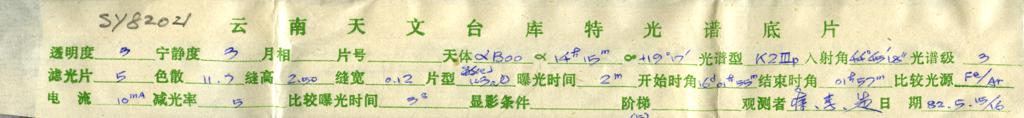 SY82021
云南天文台库特光谱底片
透明度 3 宁静度 3 月相 片号 天体 αBoo α 14ʰ15ᵐ +19°11′ 光谱型 K2IIIp 入射角 光谱级 3
滤光片 5 色散 11.7 缝高 2.00 缝宽 0.12 片型 曝光时间 2ᵐ 开始时角 结束时角 01ʰ57ᵐ 比较光源 Fe/Ar
电流 10mA 减光率 5 比较曝光时间 3ˢ 显影条件 阶梯 观测者 李、日期 82.5.15/16